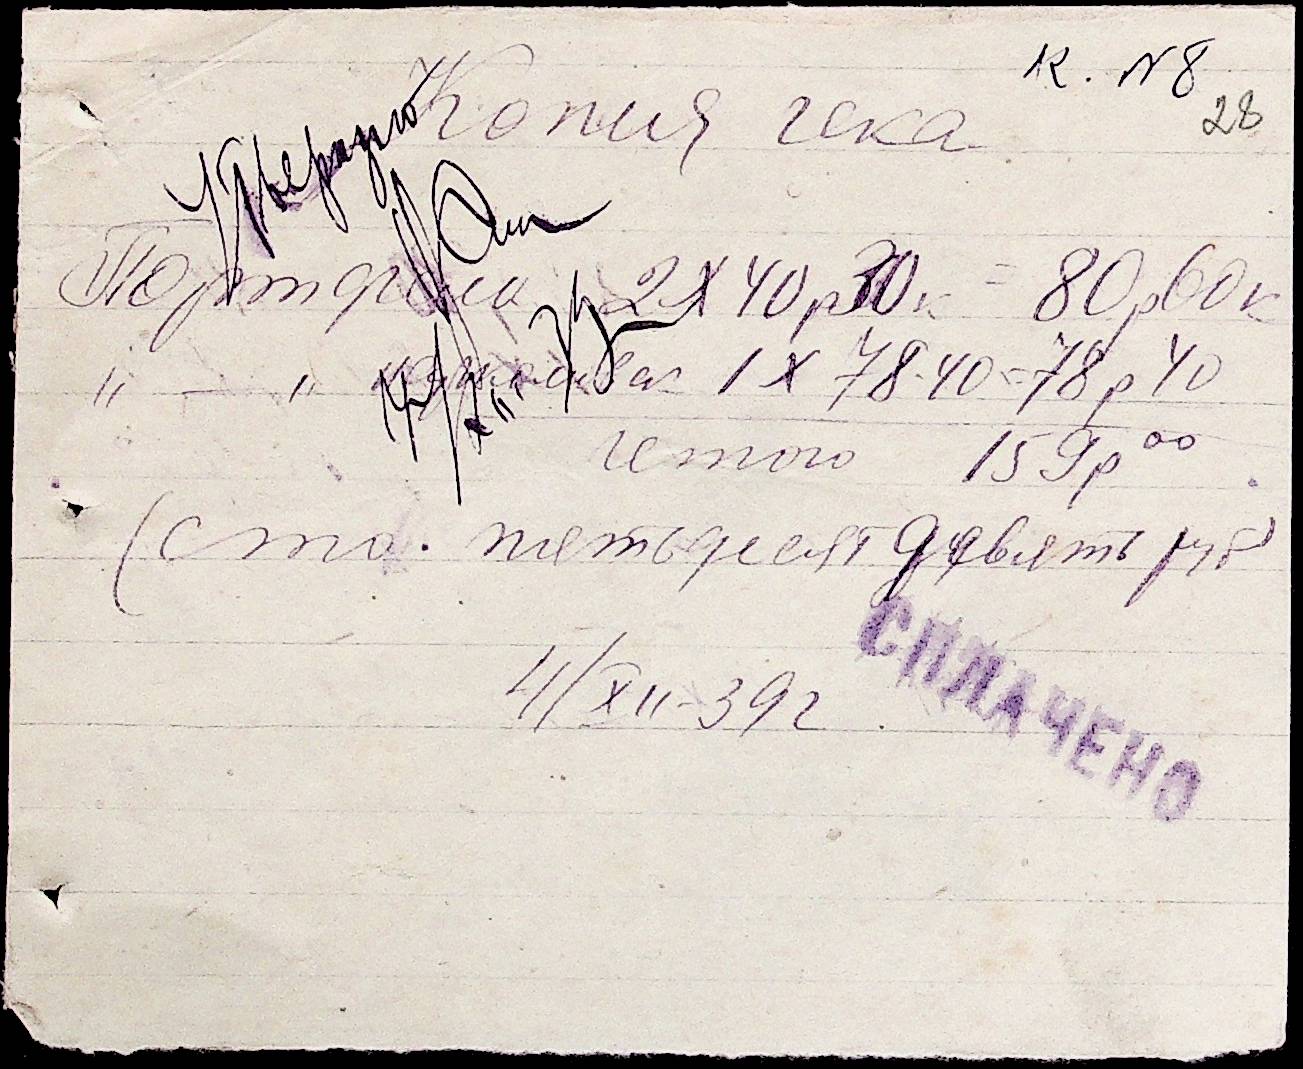 к. №8
28
Копия чека
Утверждаю
Портфели 2 х 40р 30к = 80р 60к
" — " 1 х 78-40 = 78р 40
Итого 159р 00
4/XII-39
(сто. пятьдесят девять руб)
4/XII-39г.
СПЛАЧЕНО